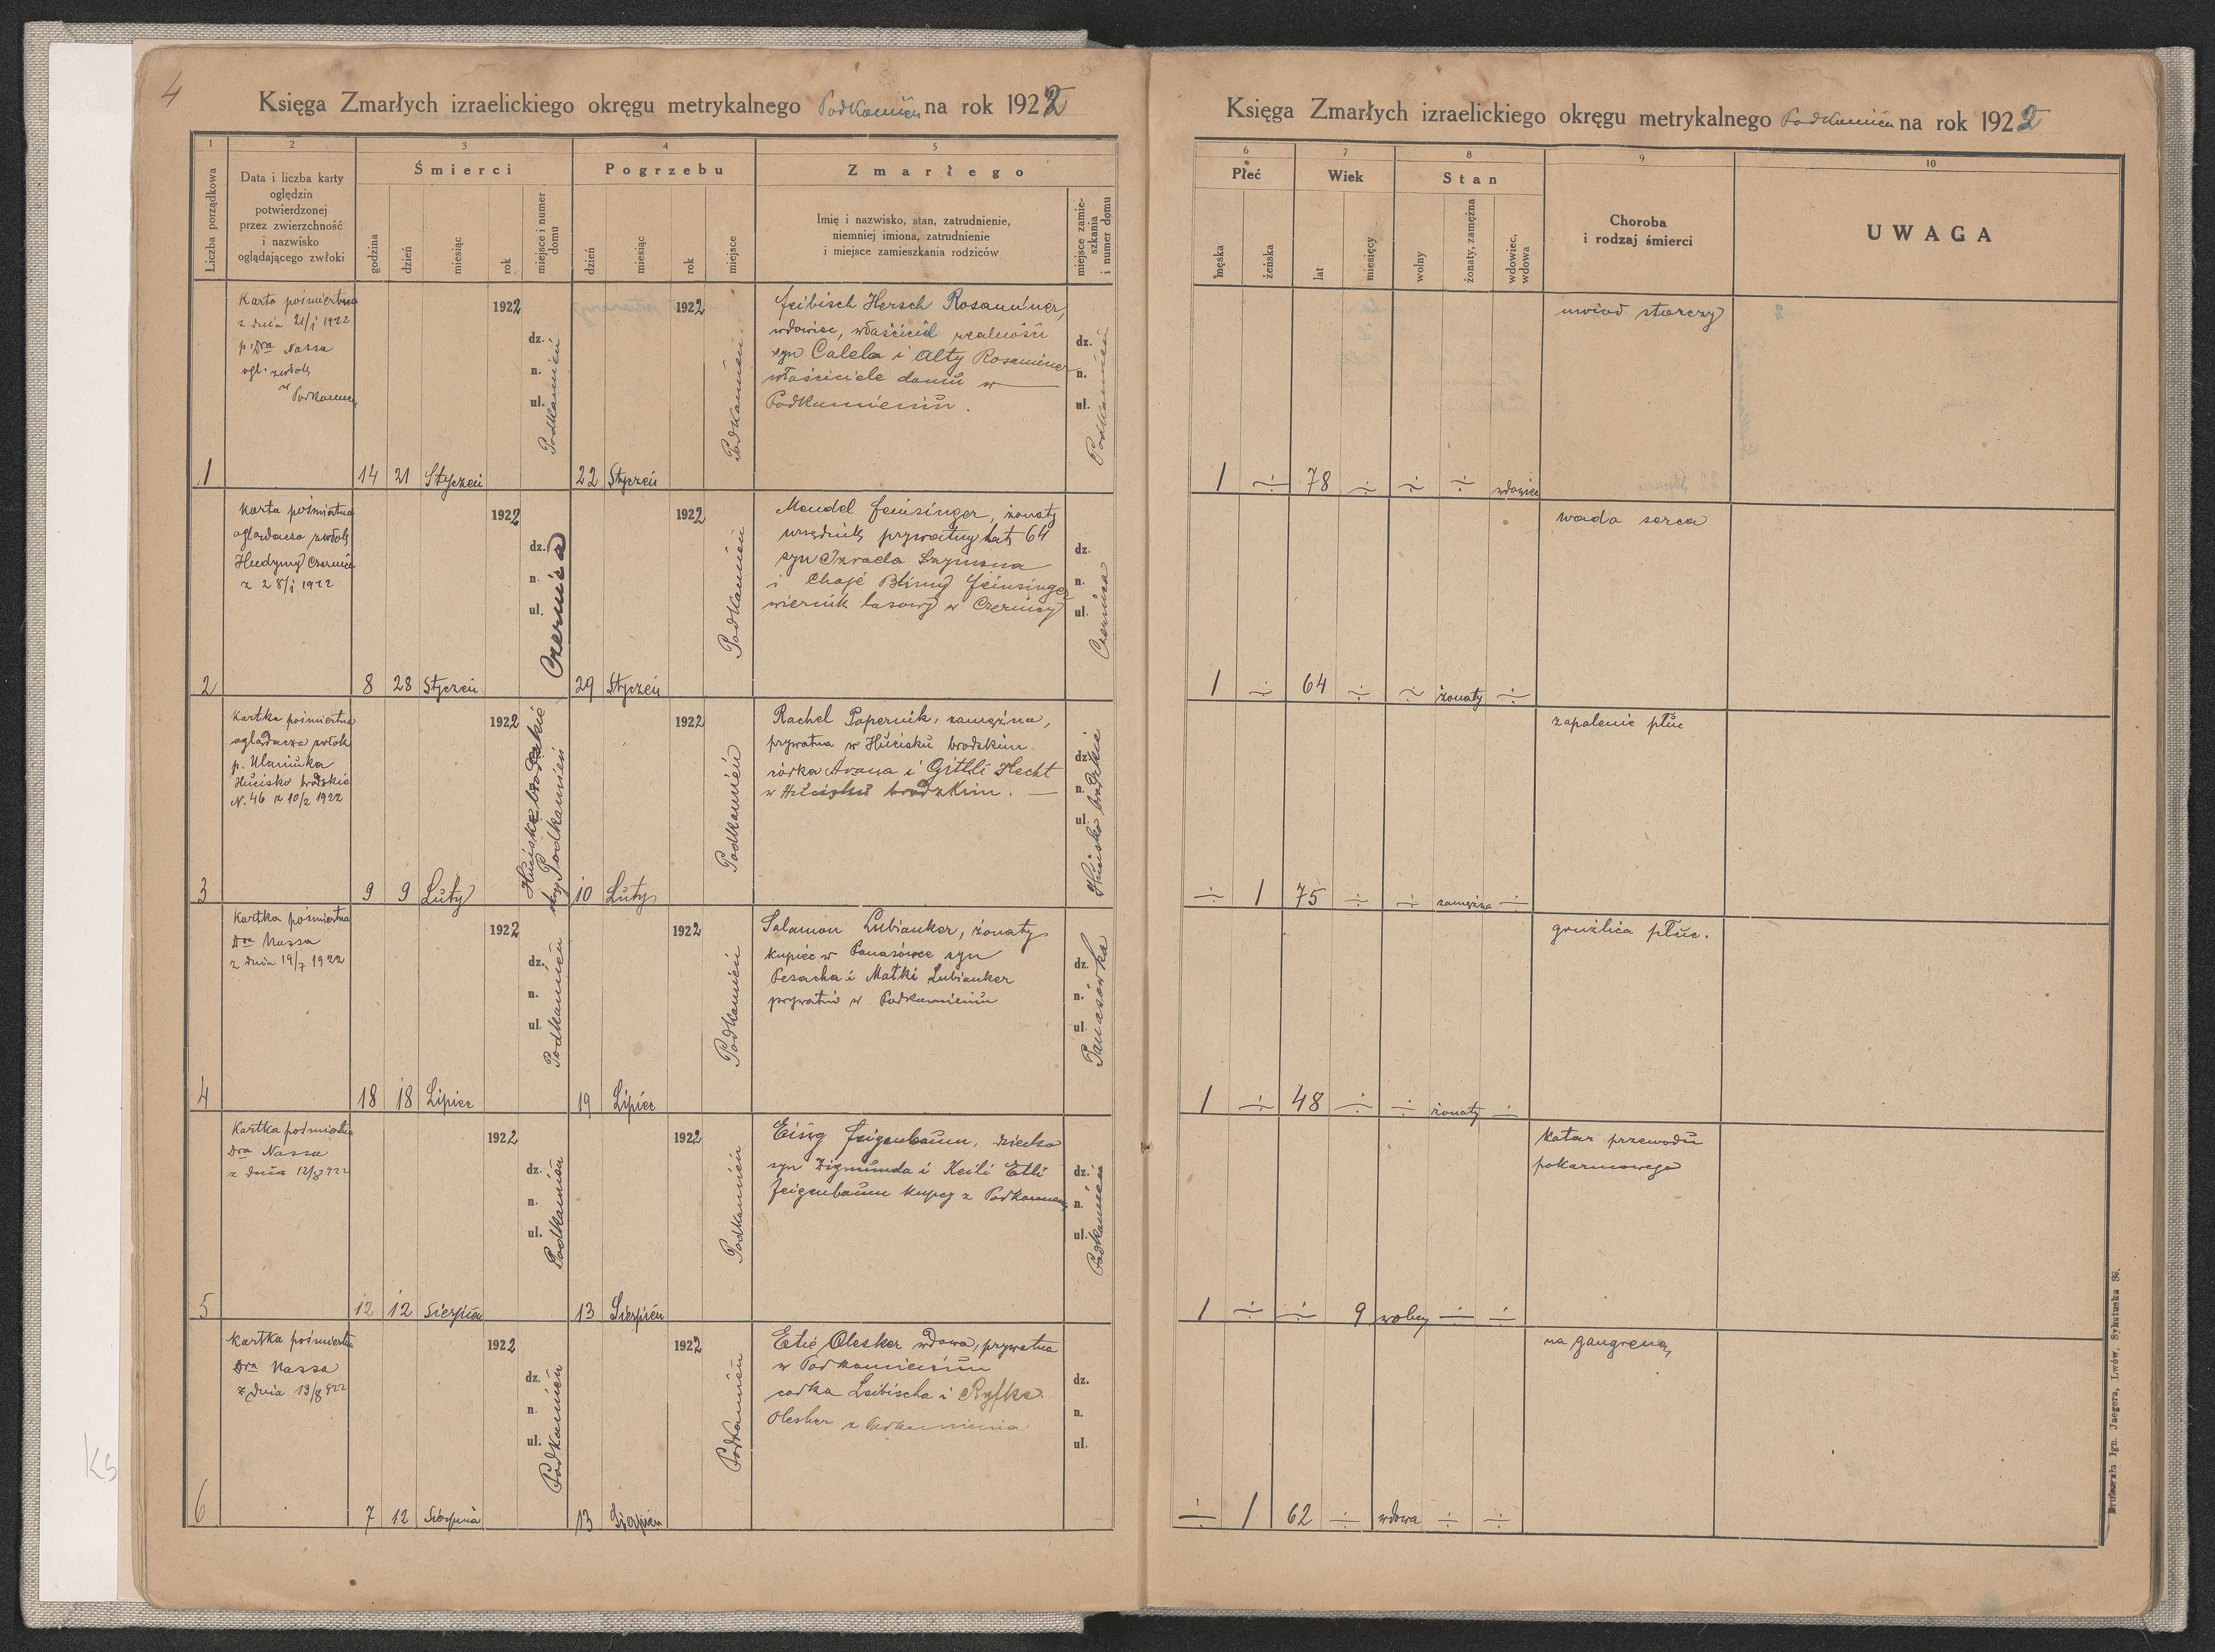 4
Księga Zmarłych izraelickiego okręgu metrykalnego Podkamień na rok 1922
1 2 3 4 5
Liczba porządkowa
Data i liczba karty
oględzin
potwierdzonej
przez zwierzchność
i nazwisko
oglądającego zwłoki
Śmierci
godzina
dzień
miesiąc
rok
miejsce i numer
domu
Pogrzebu
dzień
miesiąc
rok
miejsce
Zmarłego
Imię i nazwisko, stan, zatrudnienie,
niemniej imiona, zatrudnienie
i miejsce zamieszkania rodziców
miejsce zamie-
szkania
i numer domu
Karta pośmiertna
z dnia 21/1 1922
p. Dra Nassa
ogl. zwłok
w
Podkamień
1
14 21 Styczeń
1922
dz.
n.
ul.
Podkamień
22 Styczeń
1922
Podkamień
Feibisch Hersch Rosanner,
wdowiec, właściciel realności
syn Calela i Alty
właściciele domu w
Podkamieniu.
dz.
n.
ul.
Podkamień
Karta pośmiertna
oglądacza zwłok
Hudymy Czernica
z 28/1 1922
2
8 28 Styczeń
1922
dz.
n.
ul.
Czernica
29 Styczeń
1922
Podkamień
Mendel Feinsinger, żonaty
urzędnik prywatny lat 64
syn Izraela Szymona
i Chaje Blimy Feinsinger
wiernik lasowy w Czernicy
dz.
n.
ul.
Czernica
Kartka pośmiertna
oglądacza zwłok
p. Ulaniuka
Hucisko brodzkie
N. 46 z 10/2 1922
3
9 9 Luty
1922
Hucisko brodzkie
Podkamień
10 Luty
1922
Podkamień
Rachel Papernik, zamężna,
prywatna w Hucisku brodzkim
córka i Gittli Hecht
w Hucisku brodzkim.
dz.
n.
ul.
Hucisko brodzkie
Kartka pośmiertna
Dra Nassa
z dnia 19/7 1922
4
18 18 Lipiec
1922
dz.
n.
ul.
Podkamień
19 Lipiec
1922
Podkamień
Salamon Lubianker, żonaty
kupiec w Panasówce syn
Pesacha i Matki Lubianker
prywatni w Podkamieniu
dz.
n.
ul.
Panasówka
Kartka pośmiertna
Dra Nassa
z dnia 12/8 922
5
12 12 Sierpień
1922
dz.
n.
ul.
Podkamień
13 Sierpień
1922
Podkamień
Eisig Feigenbaum, dziecko
syn Zigmunda i Keili Etli
Feigenbaum kupcy z Podkamienia
dz.
n.
ul.
Podkamień
Kartka pośmiertna
Dra Nassa
z dnia 13/8 922
6
7 12 Sierpnia
1922
dz.
n.
ul.
Podkamień
13 Sierpień
1922
Podkamień
Etie Olesker wdowa, prywatna
w Podkamieniu
córka Leibischa i Ryfke
Olesker z Podkamienia
dz.
n.
ul.
Księga Zmarłych izraelickiego okręgu metrykalnego Podkamień na rok 1922
6 7 8 9 10
Płeć
męska
żeńska
Wiek
lat
miesięcy
Stan
wolny
żonaty, zamężna
wdowiec,
wdowa
Choroba
i rodzaj śmierci
UWAGA
uwiąd starczy
1 ÷ 78 ÷ ÷ ÷ wdowiec
wada serca
1 ÷ 64 ÷ ÷ żonaty ÷
zapalenie płuc
÷ 1 75 ÷ ÷ zamężna ÷
gruźlica płuc.
1 ÷ 48 ÷ ÷ żonaty ÷
Katar przewodu
pokarmowego
1 ÷ ÷ 9 wolny ÷ ÷
na gangrenę
÷ 1 62 ÷ wdowa ÷ ÷
Drukarnia Ign. Jaegera, Lwów, Sykstuska
Ks